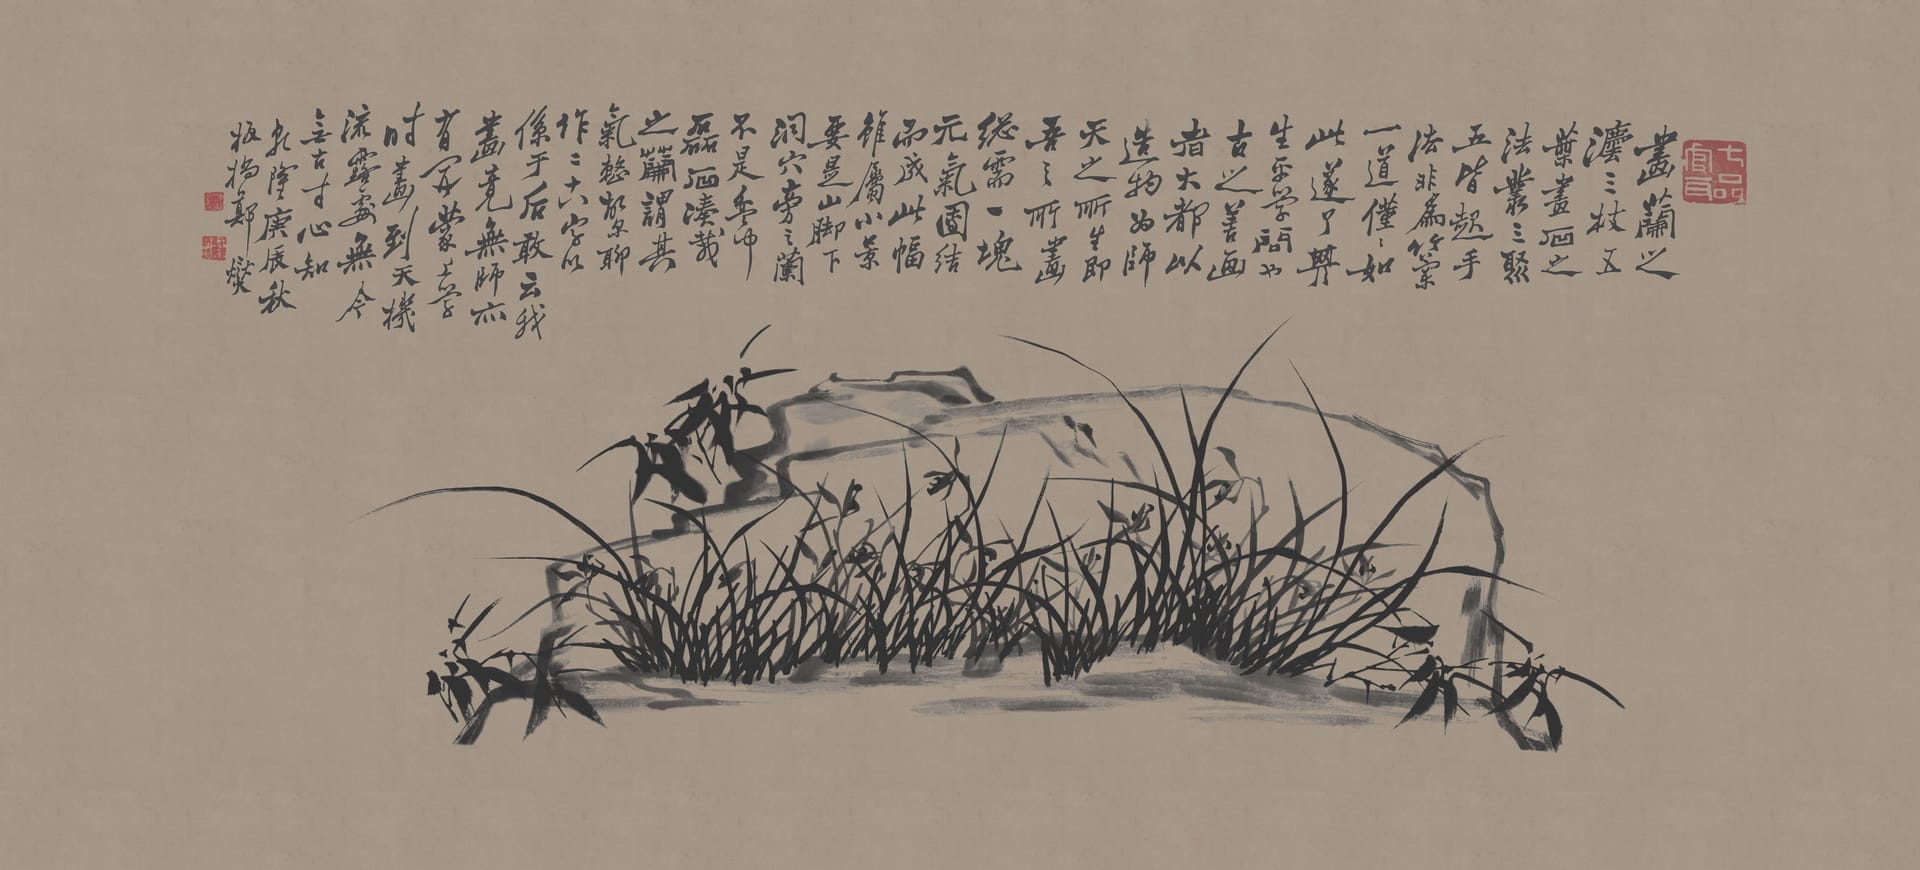 七品官耳
畫蘭之
灋三枝五
葉畫石之
法叢三聚
五皆起手
法非爲竹蘭
一道僅〻如
此遂了其
生平學問也
古之善画
者大都以
造物为師
天之所生即
吾之所畫
總需一塊
元氣團結
而成此幅
雖屬小景
要是山脚下
洞穴旁之蘭
不是盆中
磊石凑栽
之蘭謂其
氣整故尔聊
作二十八字以
係于后敢云我
畫竟無師亦
有开蒙上学
时畫到天機
流露處無今
無古寸心知
乾隆庚辰秋
板橋鄭燮